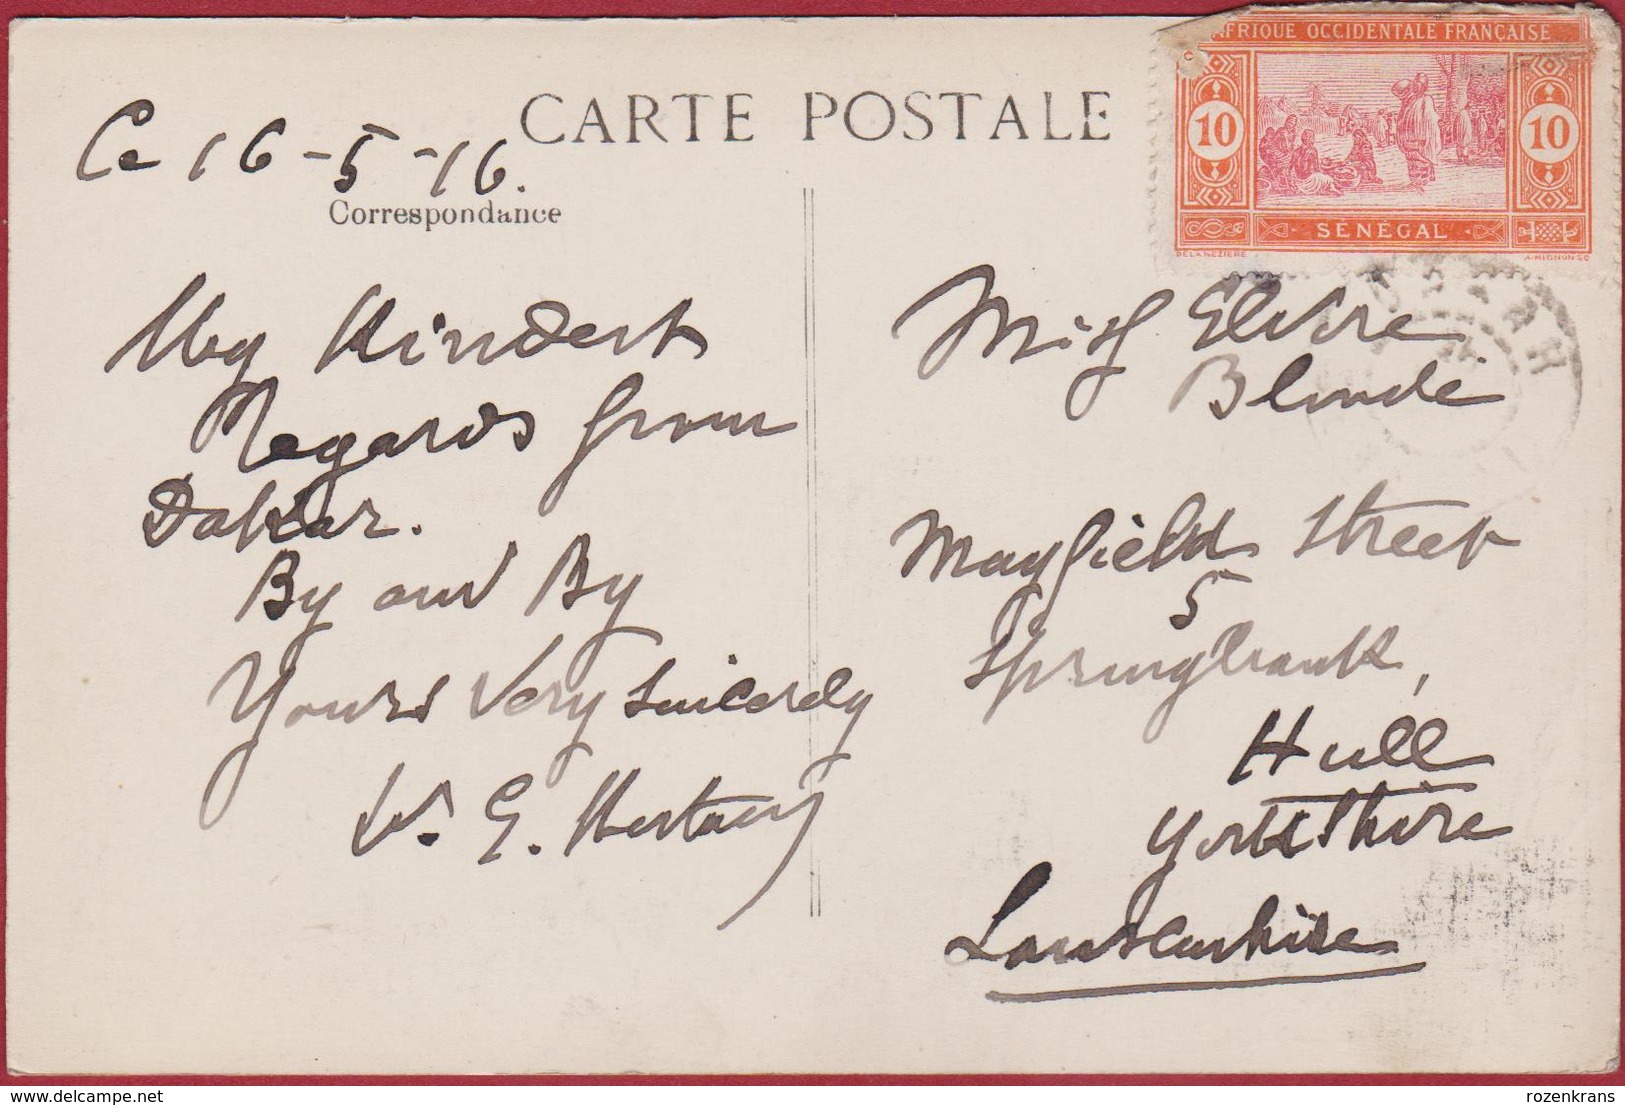 CARTE POSTALE
Ce 16-5-16.
Correspondance
My Kindest
Regards from
Dakar.
By and By
Yours Very Sincerely
W. E.
AFRIQUE OCCIDENTALE FRANÇAISE
10 10
SÉNÉGAL
DELANEZIERE A·MIGNON SC
Miss Elvire
Blonde
Mayfield Street
5
Springbank,
Hull
Yorkshire
Lancashire
delcampe.net
rozenkrans